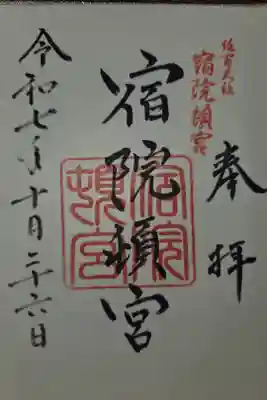 奉拝
宿院頓宮
宿院頓宮
宿院頓宮
令和七年十月二十六日